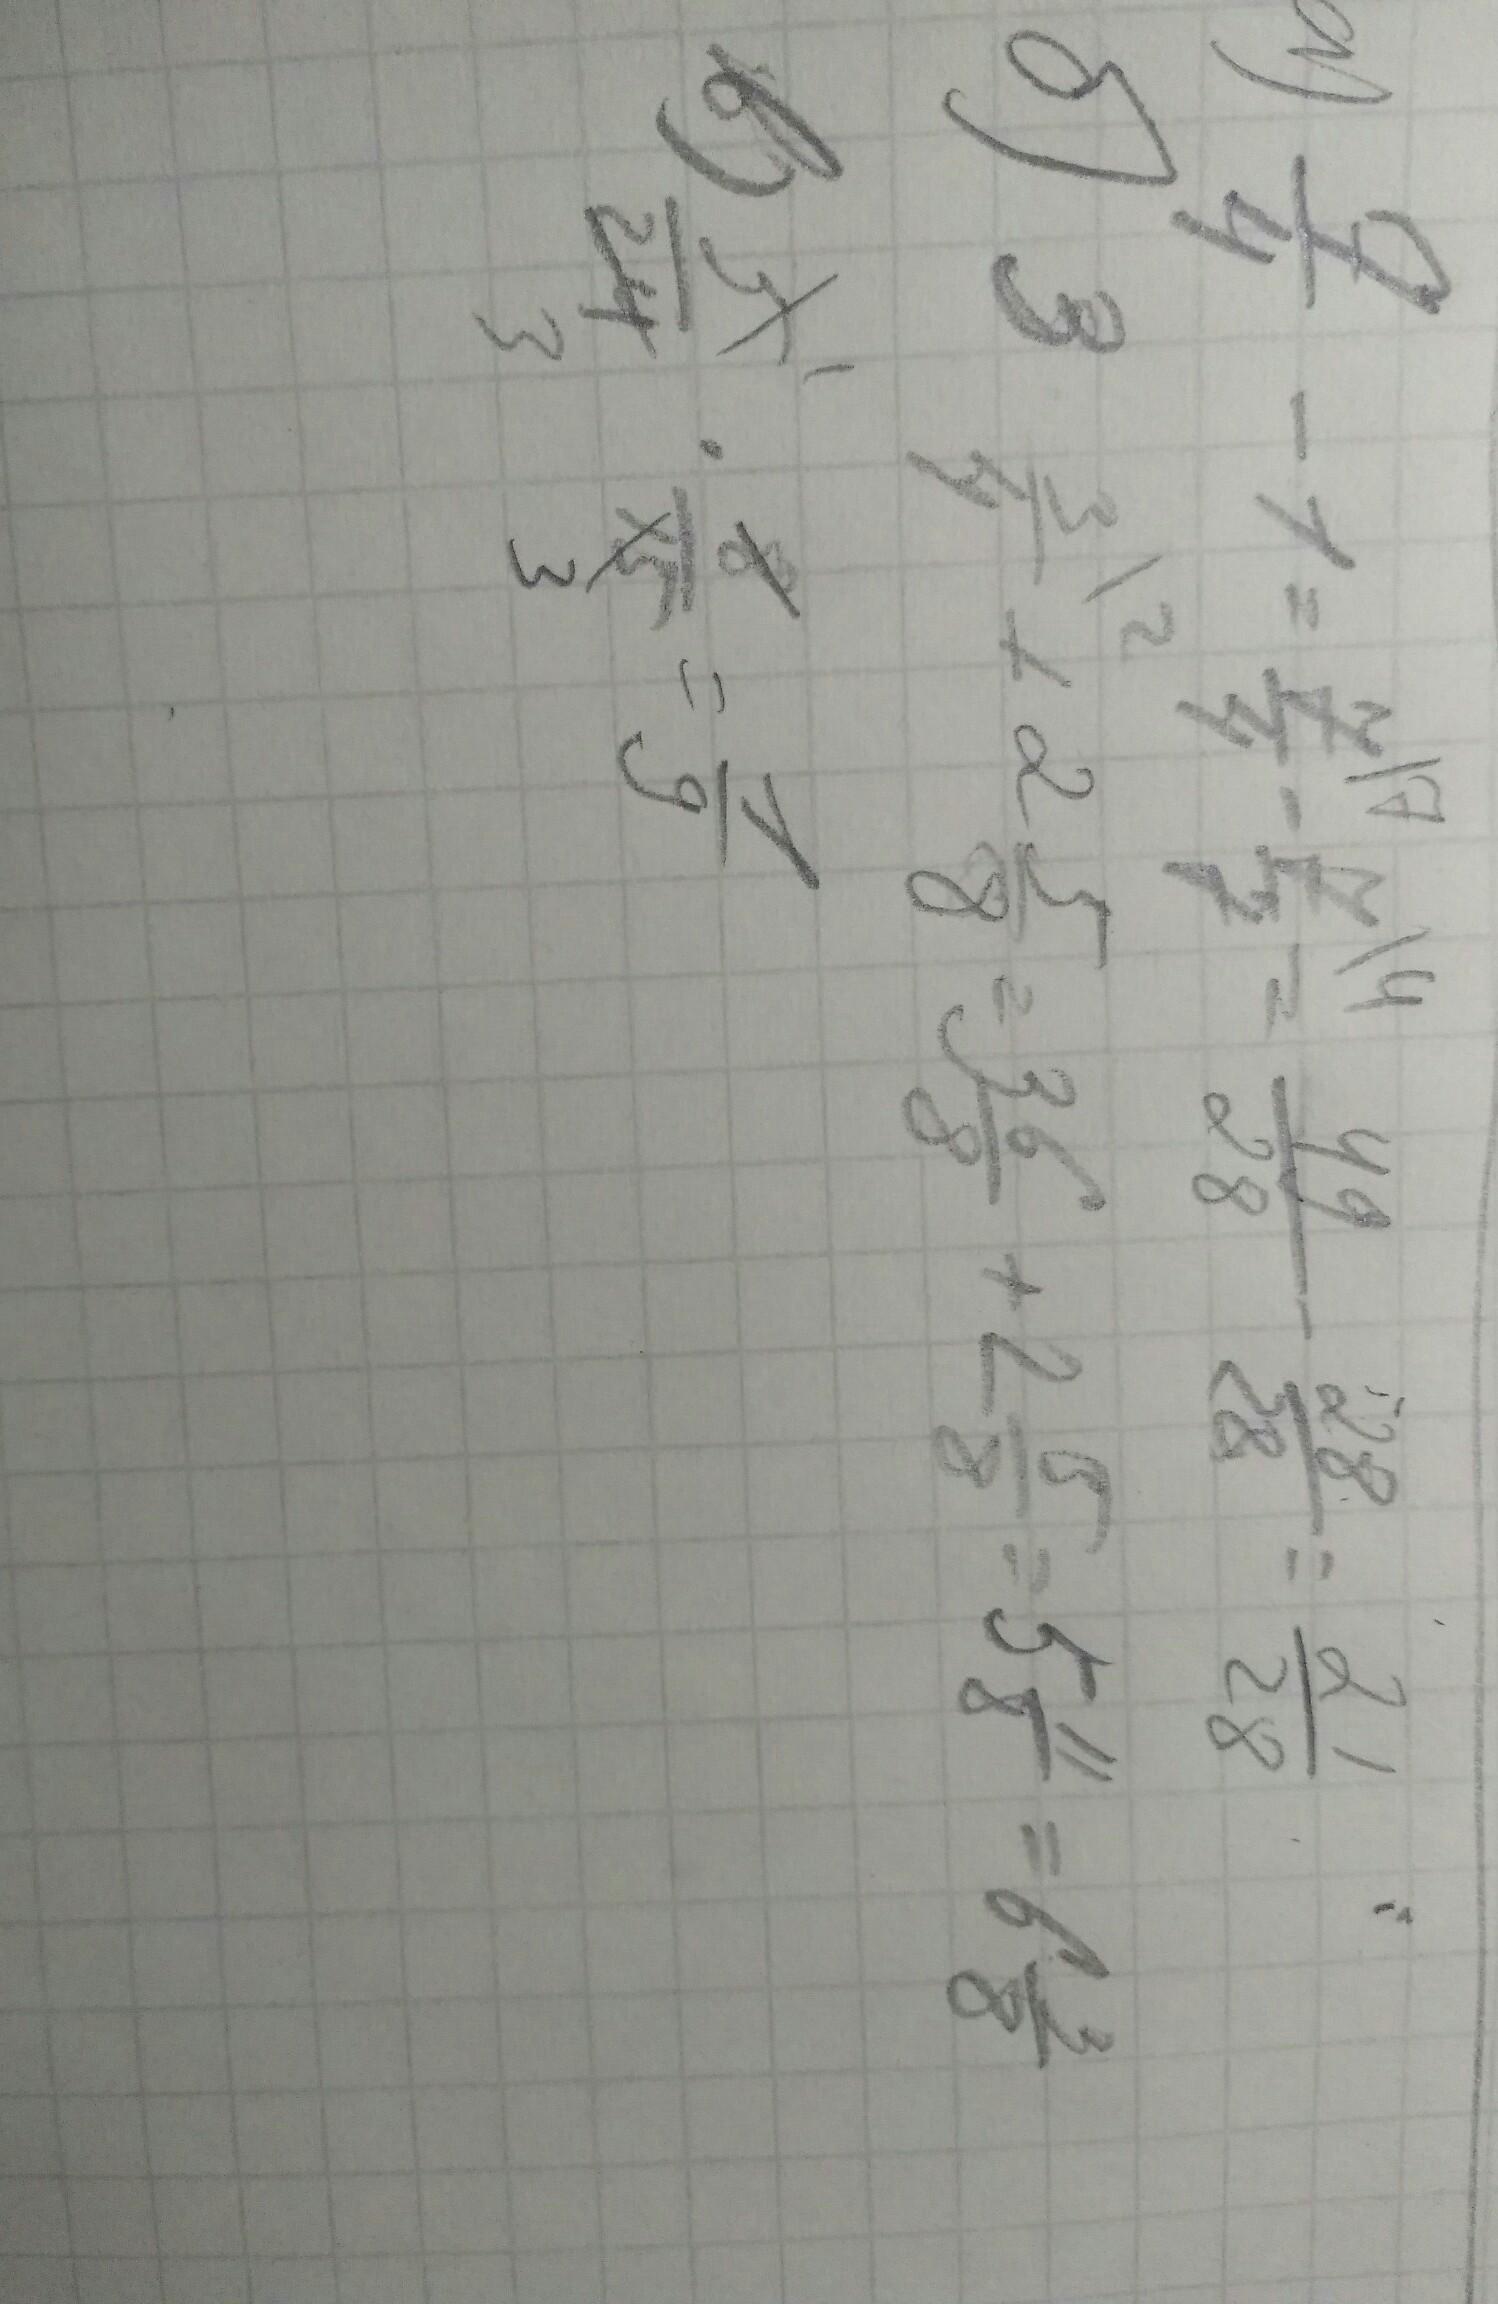 а) 7/4 - 1 = 7/4\7 - 7/7\4 = 49/28 - 28/28 = 21/28
б) 3 3/4\2 + 2 5/8 = 3 6/8 + 2 5/8 = 5 11/8 = 6 3/8
в) 5/24 · 8/15 = 1/9